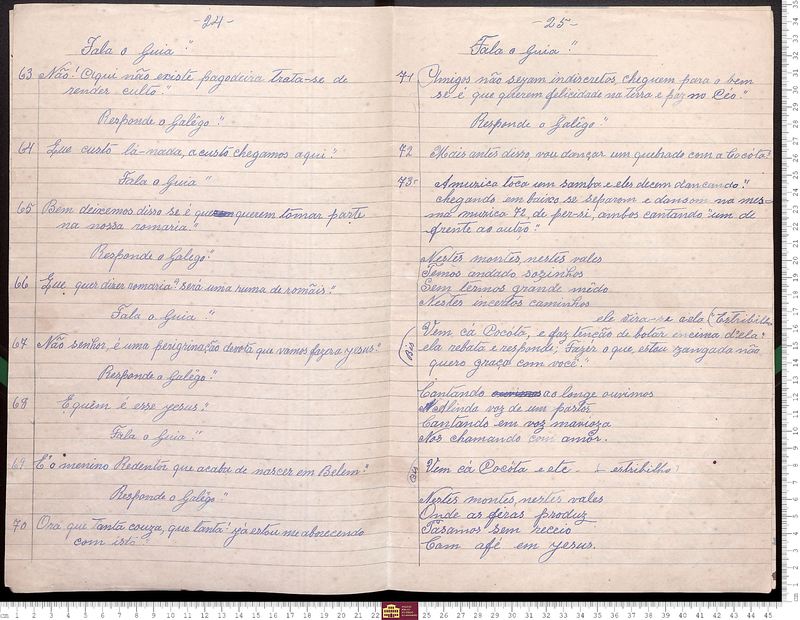 -24-
Fala o Guia"
63 Não! Aqui não existe pagodeira trata-se de
render culto."
Responde o Galêgo."
64 Que custo lá-nada, a custo chegamos aqui."
Fala o Guia"
65 Bem deixemos disso se é que querem tomar parte
na nossa romaria."
Responde o Galego."
66 Que quer dizer romaria? será uma ruma de romãis."
Fala o Guia"
67 Não senhor, é uma peregrinação devota que vamos fazer a Jesus."
Responde o Galêgo."
68 E quem é esse Jesus."
Fala o Guia"
69 E'o menino Redentor que acaba de nascer em Belem."
Responde o Galêgo"
70 Ora que tanta couza, que tanta! já estou me aborecendo
com isto"
-25-
Fala o Guia"
71 Amigos não sejam indiscretos cheguem para o bem
se é que querem felicidade na terra e paz no Céo."
Responde o Galêgo"
72 Mais antes disso, vou dançar um quebrado com a Cocóta."
73- A muzica toca um samba e eles decem dancando."
chegando em baixo se separam e dansam na mes-
ma muzica 72, de per-si, ambos cantando "um de
frente ao outro"
Nestes montes, nestes vales
Temos andado sozinhos
Sem termos grande mêdo
Nestes incertos caminhos
ele vira-se a ela (Estribilho
(Bis) Vem cá Cocóta, e faz tenção de botar encima d'ela:
ela rebate e responde; Fazer o que estou zangada não
quero graça com você."
Cantando ao longe ouvimos
A linda voz de um pastor
Cantando em voz mavioza
Nos chamando com amôr.
Bis Vem cá Cocóta e etc - estribilho
Nestes montes, nestes vales
Onde as féras produz
Pasamos sem receio
Com a fé em Jesus.